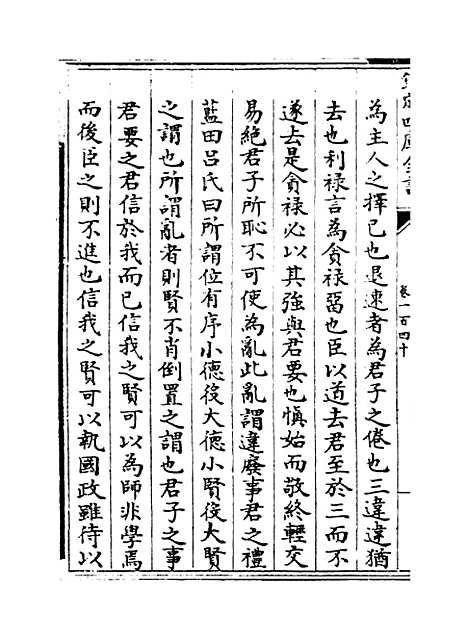 欽定四庫全書
卷一百四十
為主人之擇已也退速者為君子之倦也三違違猶
去也利禄言為貪禄㽞也臣以道去君至於三而不
遂去是貪禄必以其強與君要也慎始而敬終輕交
易絶君子所恥不可使為亂此亂謂違廢事君之禮
藍田吕氏曰所謂位有序小德役大德小賢役大賢
之謂也所謂亂者則賢不肖倒置之謂也君子之事
君要之君信於我而已信我之賢可以為師非學焉
而後臣之則不進也信我之賢可以執國政雖待以